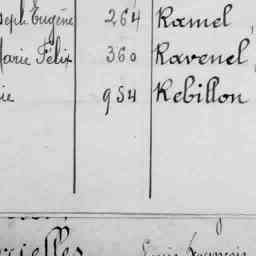 seph Eugène 264 Ramel,
Marie Félix 360 Ravenel,
ie 954 Rebillon
cielles Louis François